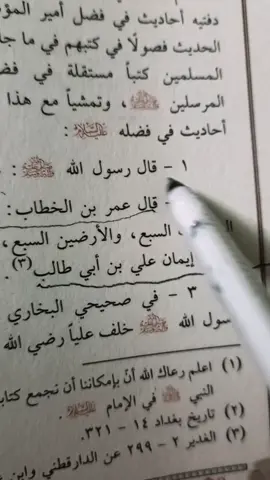 دفتيه أحاديث في فضل أمير المؤ
الحديث فصولًا في كتبهم في ما جا
المسلمين كتباً مستقلة في فض
المرسلين ﷺ، وتمشياً مع هذا
أحاديث في فضله :
١ - قال رسول الله ﷺ :
- قال عمر بن الخطاب :
السبع، والأرضين السبع،
إيمان علي بن أبي طالب (٣) .
٣ - في صحيحي البخاري
سول الله ﷺ خلف علياً رضي الله
(١) اعلم رعاك الله أنّ بإمكاننا أن نجمع كتاب
النبي ﷺ في الإمام
(٢) تاريخ بغداد ١٤ - ٣٢١.
(٣) الغدير ٢ - ٢٩٩ عن الدارقطني وابن